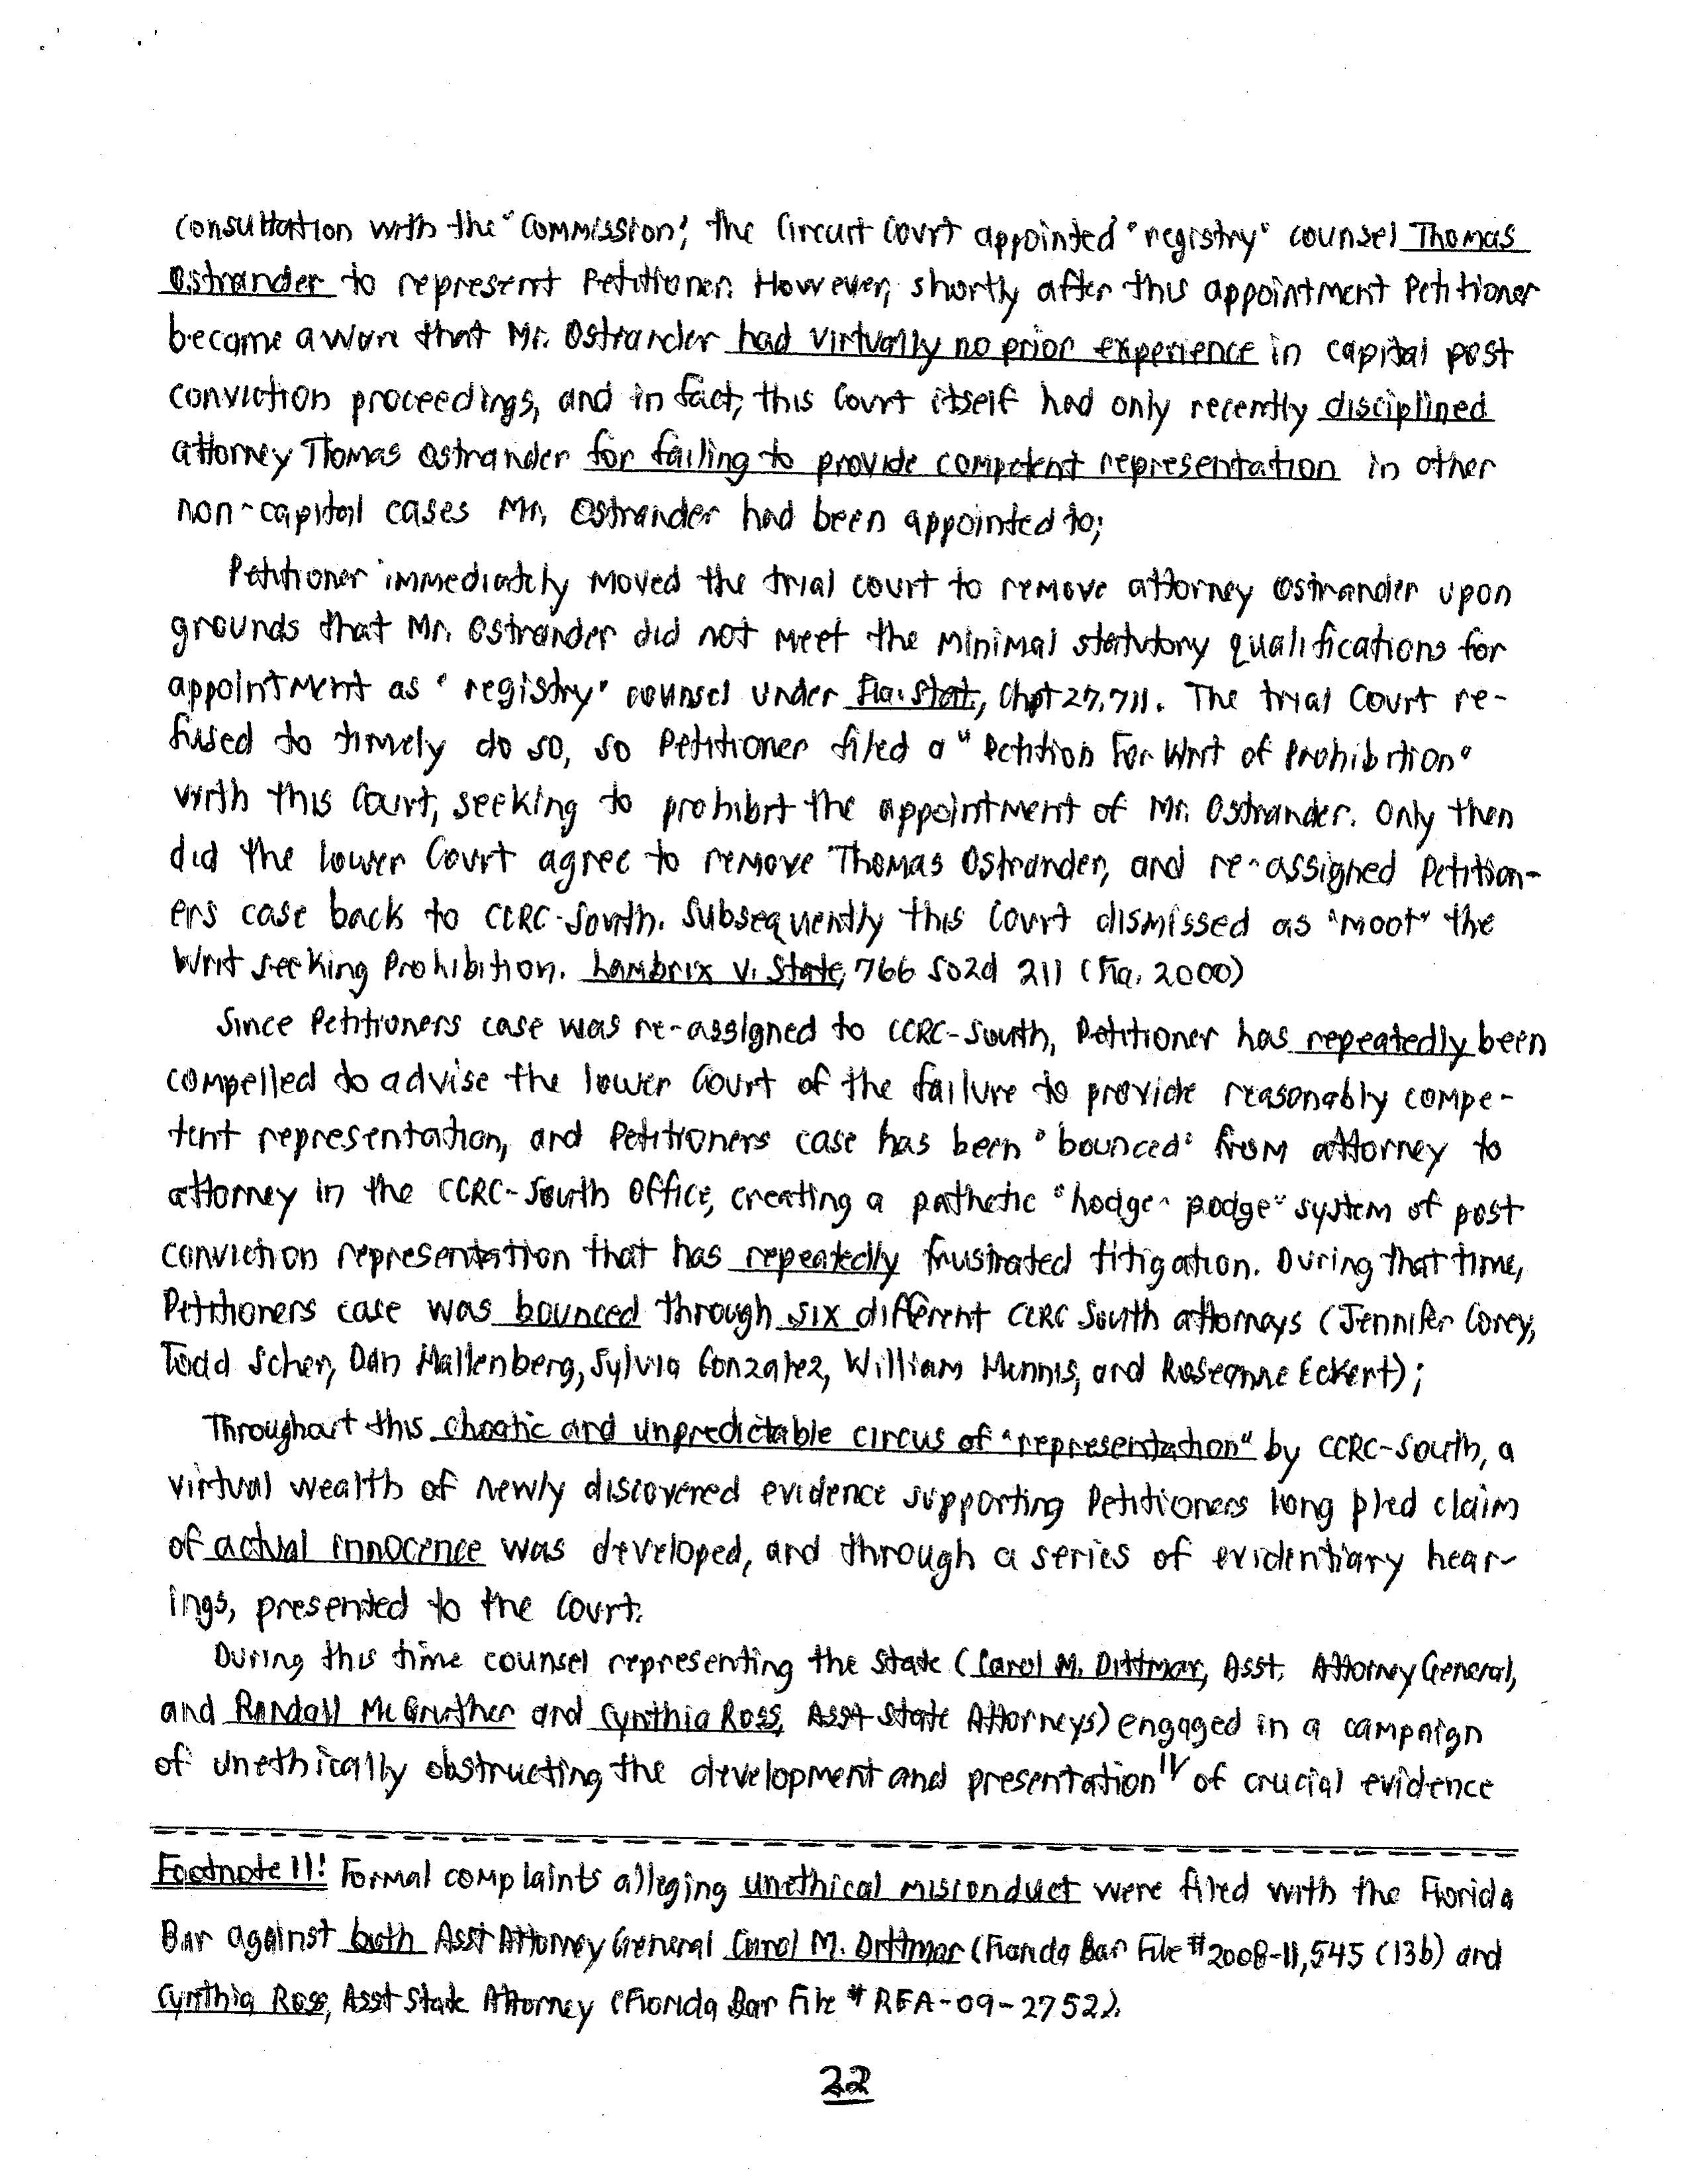 consultation with the "Commission", the Circuit Court appointed "registry" counsel Thomas
Ostrander to represent Petitioner. However, shortly after this appointment Petitioner
became aware that Mr. Ostrander had virtually no prior experience in capital post
conviction proceedings, and in fact, this Court itself had only recently disciplined
attorney Thomas Ostrander for failing to provide competent representation in other
non-capital cases Mr. Ostrander had been appointed to;
Petitioner immediately moved the trial court to remove attorney Ostrander upon
grounds that Mr. Ostrander did not meet the minimal statutory qualifications for
appointment as "registry" counsel under Fla. Stat., Chpt 27.711. The trial Court re-
fused to timely do so, so Petitioner filed a "Petition For Writ of Prohibition"
with this Court, seeking to prohibit the appointment of Mr. Ostrander. Only then
did the lower Court agree to remove Thomas Ostrander, and re-assigned Petition-
ers case back to CCRC-South. Subsequently this Court dismissed as "moot" the
Writ seeking Prohibition. Lambrix v. State, 766 So2d 211 (Fla. 2000)
Since Petitioners case was re-assigned to CCRC-South, Petitioner has repeatedly been
compelled to advise the lower Court of the failure to provide reasonably compe-
tent representation, and Petitioners case has been "bounced" from attorney to
attorney in the CCRC-South Office, creating a pathetic "hodge-podge" system of post
conviction representation that has repeatedly frustrated litigation. During that time,
Petitioners case was bounced through six different CCRC South attorneys (Jennifer Corey,
Todd Scher, Dan Hallenberg, Sylvia Gonzalez, William Hennis, and Roseanne Eckert);
Throughout this choatic and unpredictable circus of "representation" by CCRC-South, a
virtual wealth of newly discovered evidence supporting Petitioners long pled claim
of actual innocence was developed, and through a series of evidentiary hear-
ings, presented to the Court.
During this time counsel representing the State (Carol M. Dittmar, Asst. Attorney General,
and Randall McGruther and Cynthia Ross, Asst State Attorneys) engaged in a campaign
of unethically obstructing the development and presentation 11/ of crucial evidence
Footnote 11: Formal complaints alleging unethical misconduct were filed with the Florida
Bar against both Asst Attorney General Carol M. Dittmar (Florida Bar File #2008-11,545 (13b) and
Cynthia Ross, Asst State Attorney (Florida Bar File # RFA-09-2752).
22